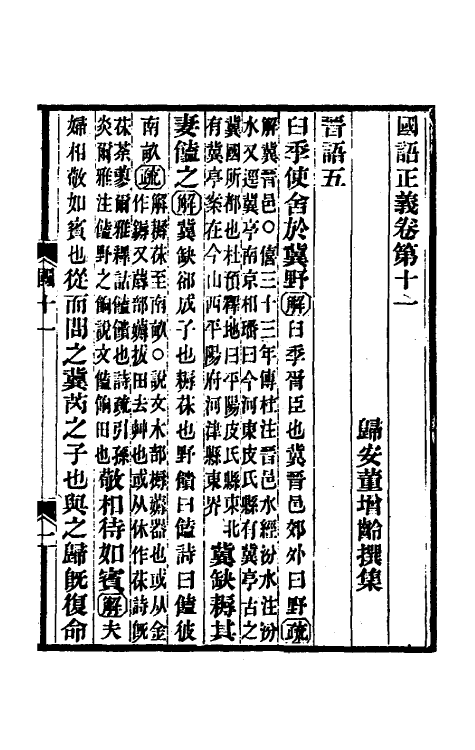 國語正義卷第十一
歸安董增齡撰集
晉語五
臼季使舍於冀野解臼季胥臣也冀晉邑郊外曰野疏
解冀晉邑○僖三十三年傳杜注晉邑水經汾水注汾
水又逕冀亭南京相璠曰今河東皮氏縣有冀亭古之
冀國所都也杜預釋地曰平陽皮氏縣東北
有冀亭案在今山西平陽府河津縣東界
冀缺耨其
妻饁之解冀缺郤成子也耨茠也野饋曰饁詩曰饁彼
南畝疏
解耨茠至南畝○說文木部槈薅器也或从金
作鎒又蓐部薅拔田去艸也或从休作茠詩旣
茠荼蓼爾雅釋詁饁饋也詩疏引孫
炎爾雅注饁野之餉說文饁餉田也
敬相待如賓解夫
婦相敬如賓也從而問之冀芮之子也與之歸旣復命
國十一
一